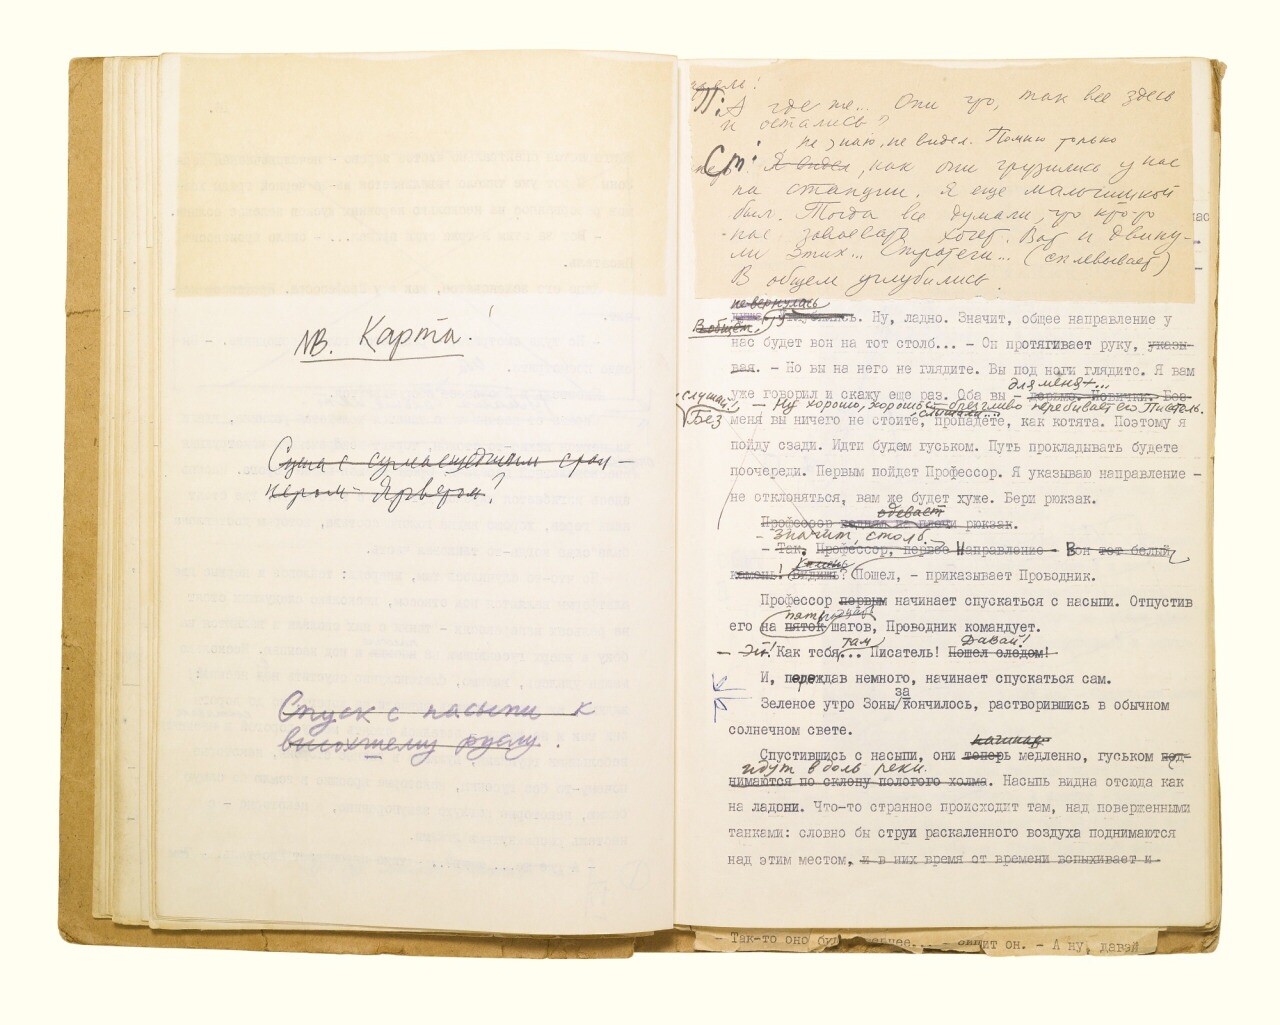 NB. Карта!
Сцена с сумасшедшим
?
Спуск с насыпи к
высохшему руслу.
П: А где же... Они что, так все здесь
и остались?
не знаю, не видел. Помню только
Ст: Я видел, как они грузились у нас
на станции. Я еще мальчишкой
был. Тогда все думали, что кто-то
нас завоевать хочет. Вот и двину-
ли этих... Стратеги... (сплевывает)
В общем углубились.
не вернулась
В общем, углубились. Ну, ладно. Значит, общее направление у
нас будет вон на тот столб... - Он протягивает руку, указы-
вая. - Но вы на него не глядите. Вы под ноги глядите. Я вам
для меня
уже говорил и скажу еще раз. Оба вы - дерьмо. Новички. Без
слушай! - Ну хорошо, хорошо - брезгливо перебивает его Писатель.
Без слышали...
меня вы ничего не стоите, пропадете, как котята. Поэтому я
пойду сзади. Идти будем гуськом. Путь прокладывать будете
поочереди. Первым пойдет Профессор. Я указываю направление -
не отклоняться, вам же будет хуже. Бери рюкзак.
одевает
Профессор рюкзак.
- Значит, столб.
- Так. Профессор, первое Направление - Вон тот белый
камень
камень! Видишь? Пошел, - приказывает Проводник.
Профессор первым начинает спускаться с насыпи. Отпустив
пять
его на пяток шагов, Проводник командует.
там Давай!
- Эй! Как тебя... Писатель! Пошел следом!
И, переждав немного, начинает спускаться сам.
за
Зеленое утро Зоны/кончилось, растворившись в обычном
солнечном свете.
Спустившись с насыпи, они теперь медленно, гуськом под-
идут вдоль реки.
нимаются по склону пологого холма. Насыпь видна отсюда как
на ладони. Что-то странное происходит там, над поверженными
танками: словно бы струи раскаленного воздуха поднимаются
над этим местом, и в них время от времени вспыхивает и
- Так-то оно он. - А ну, давай